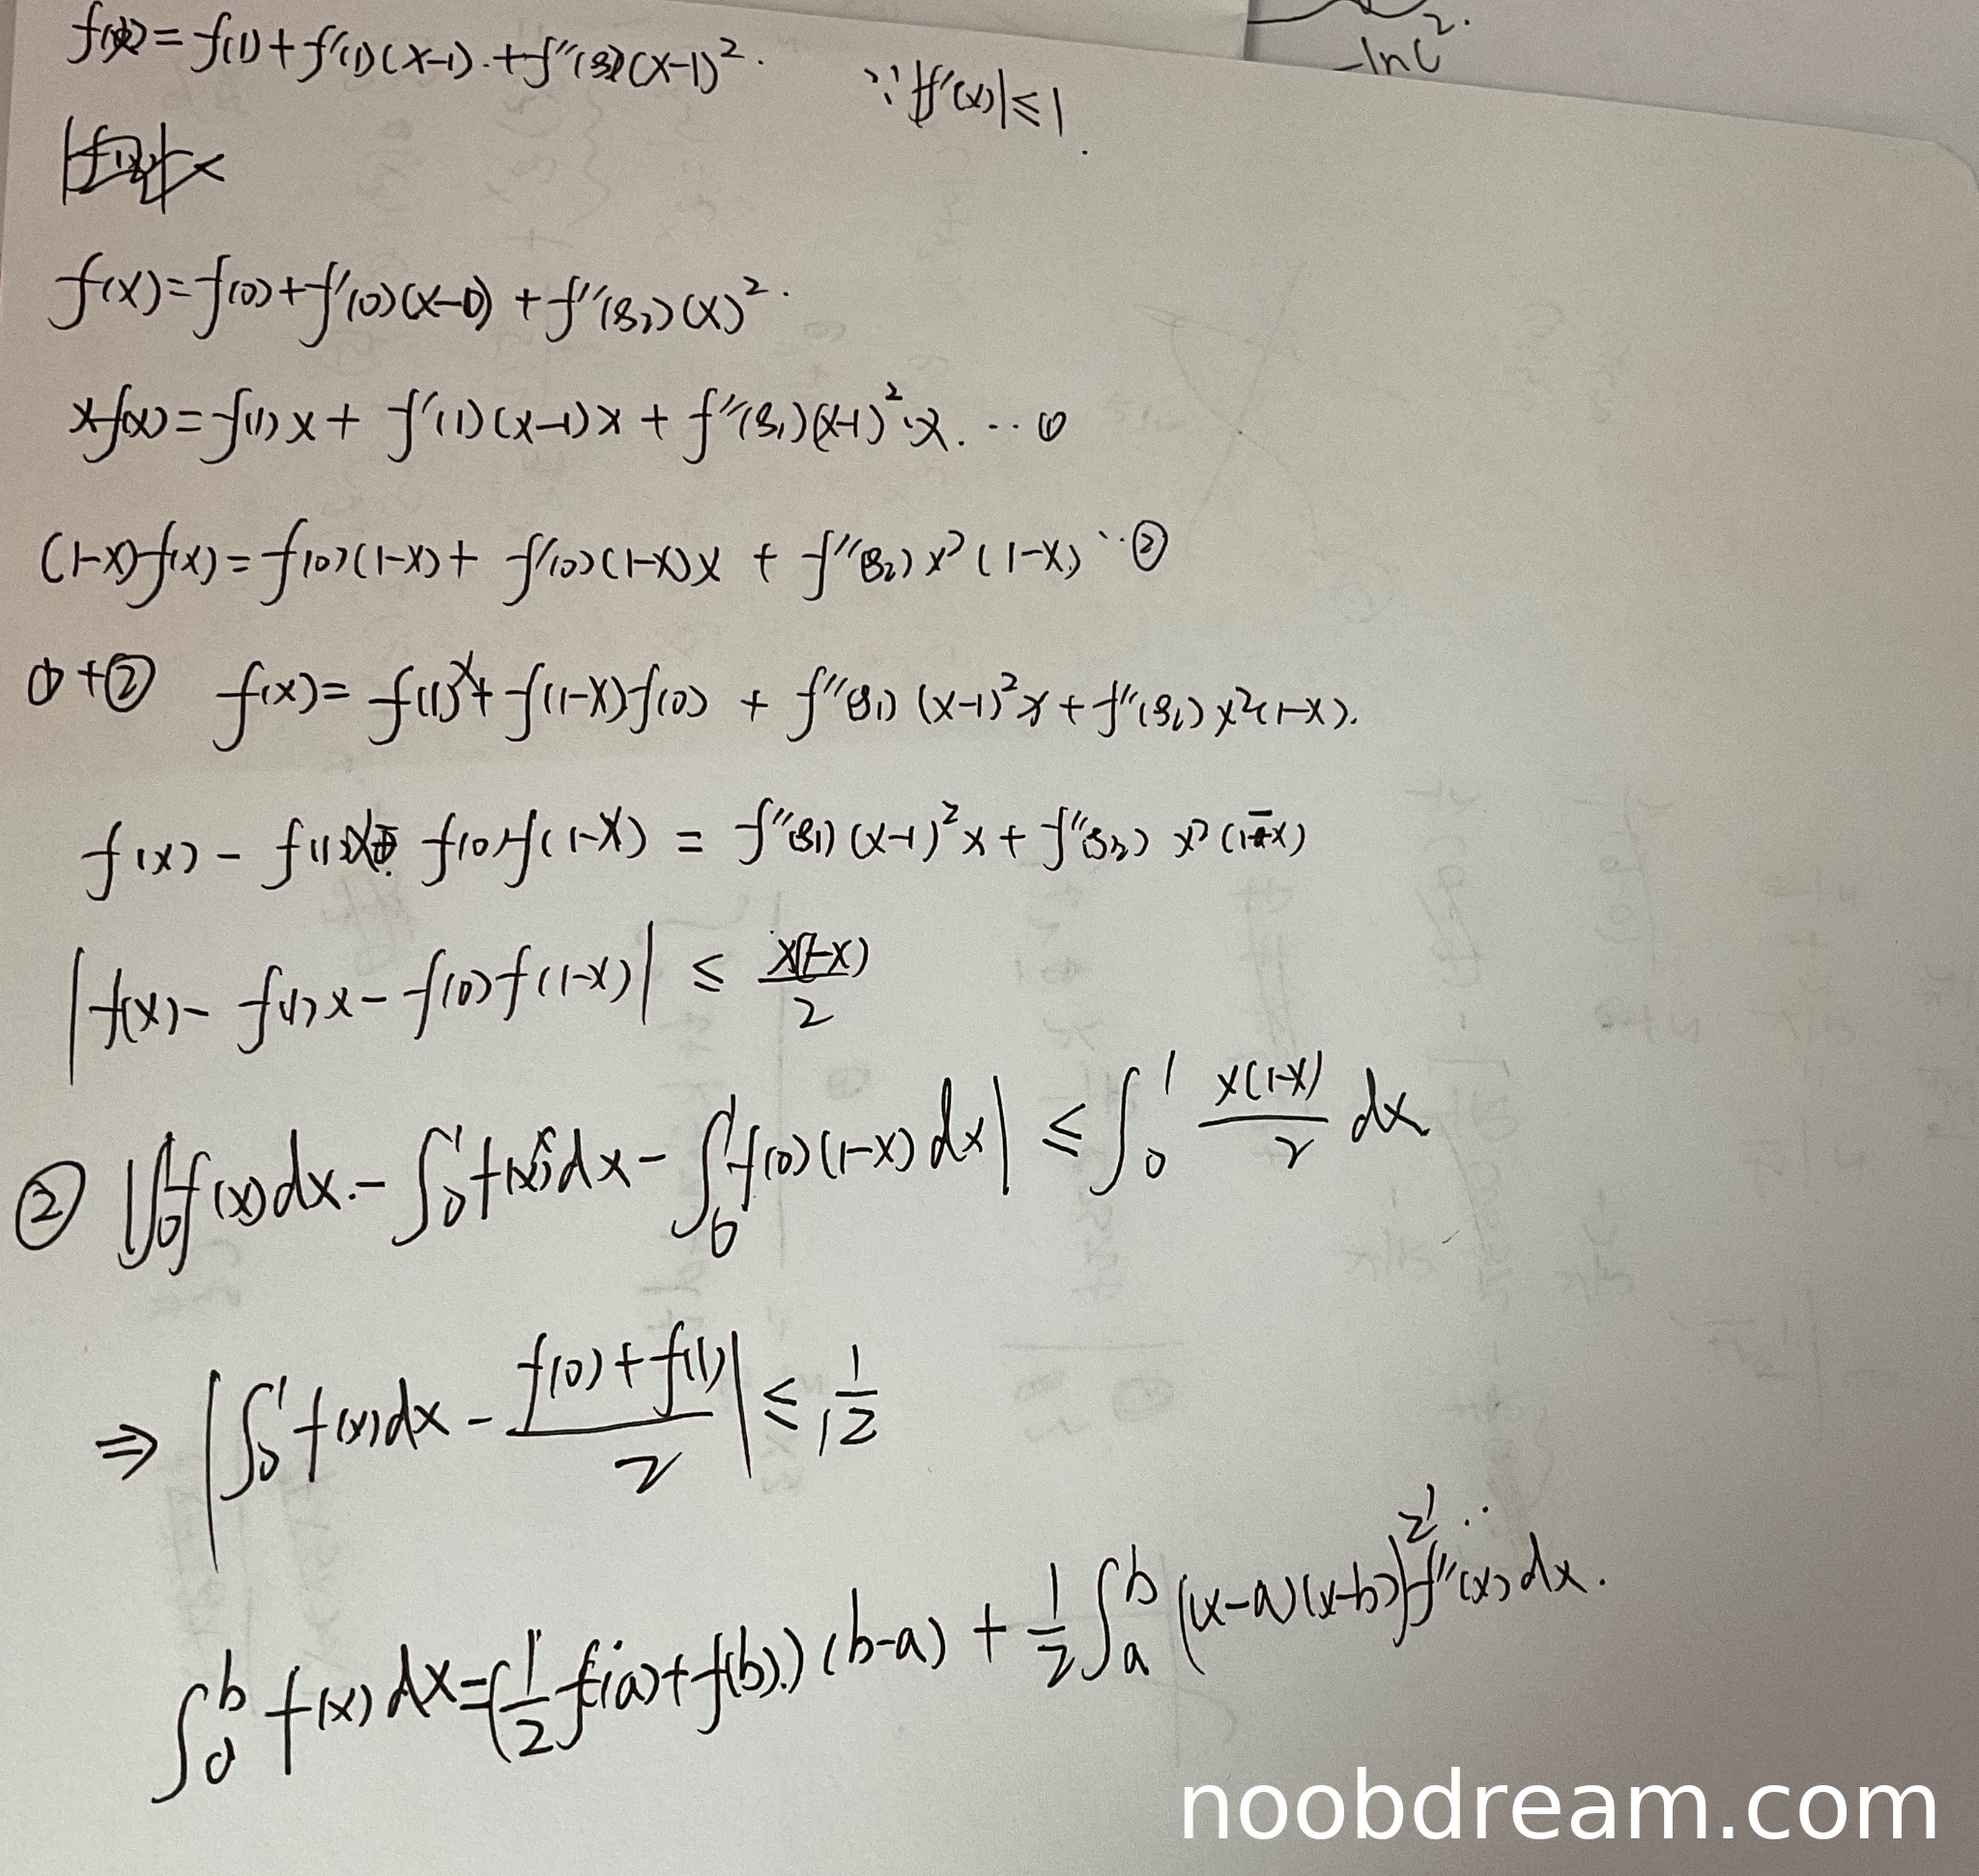 -ln C².
f(x)=f(1)+f'(1)(x-1).+f''(ξ₁)(x-1)².
∵ |f''(x)|≤1.
f(x)=f(0)+f'(0)(x-0)+f''(ξ₂)(x)².
xf(x)=f(1)x+f'(1)(x-1)x+f''(ξ₁)(x-1)²·x. ··· ①
(1-x)f(x)=f(0)(1-x)+f'(0)(1-x)x+f''(ξ₂)x²(1-x) ··②
①+② f(x)=f(1)x+f(1-x)f(0)+f''(ξ₁)(x-1)²x+f''(ξ₂)x²(1-x).
f(x)-f(1)x- f(0)f(1-x)=f''(ξ₁)(x-1)²x+f''(ξ₂)x²(1-x)
|f(x)-f(1)x-f(0)f(1-x)|≤x(1-x)/2
② |∫₀¹f(x)dx.-∫₀¹f(1)xdx-∫₀¹f(0)(1-x)dx|≤∫₀¹ x(1-x)/2 dx
⇒ |∫₀¹f(x)dx-(f(0)+f(1))/2|≤1/12
∫ₐᵇf(x)dx=(1/2 f(a)+f(b))(b-a)+1/2∫ₐᵇ(x-a)(x-b)f''(x)dx.
noobdream.com